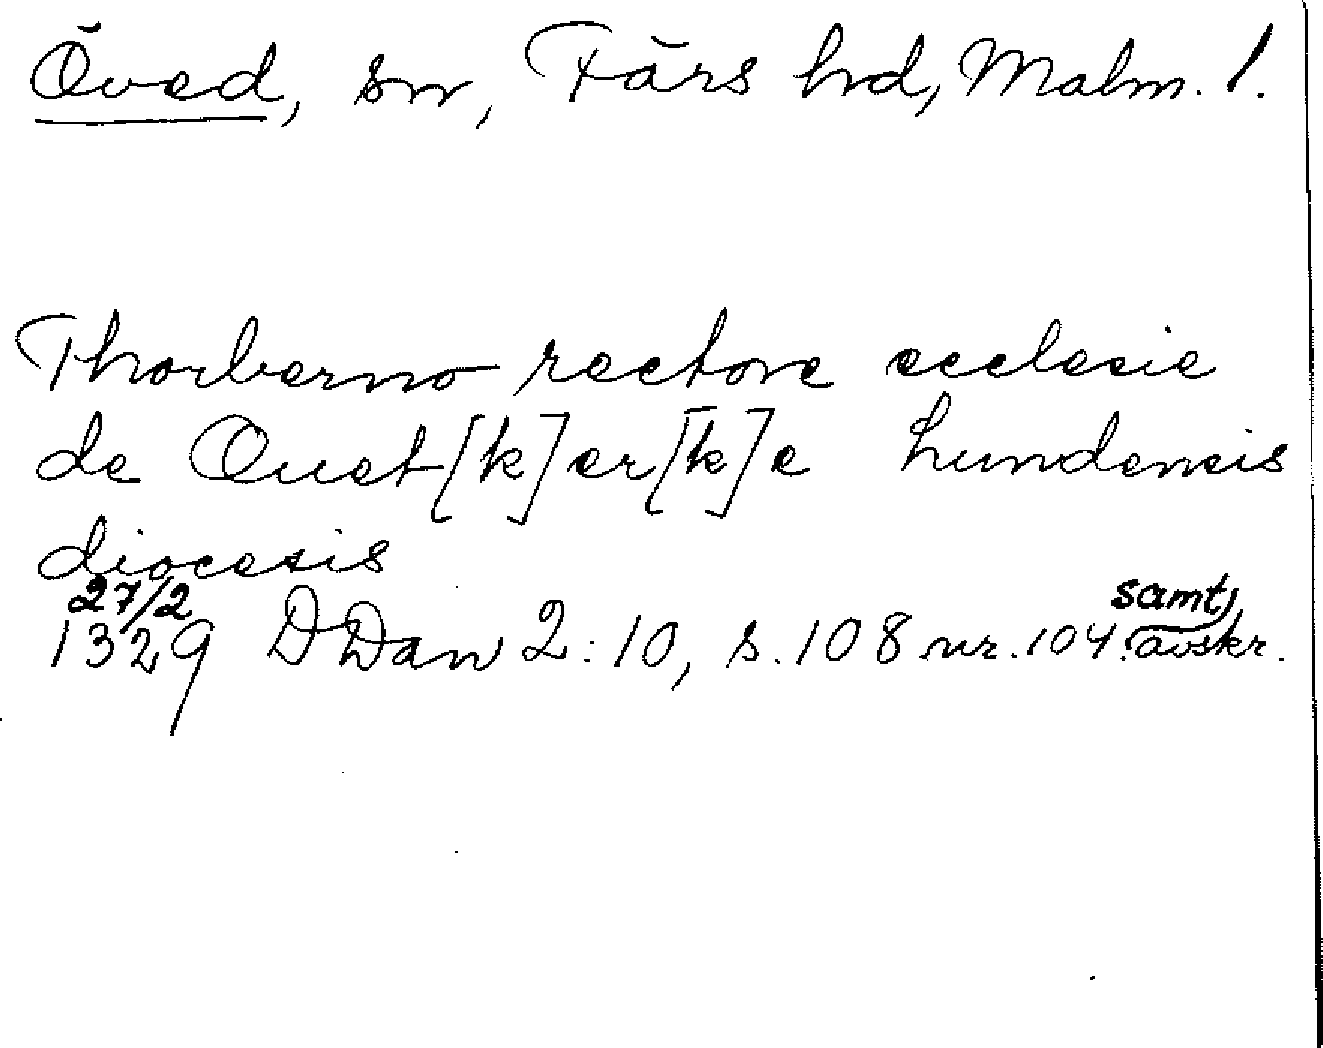 Öved, sn, Färs hrd, Malm. l.
Thorberno rectore ecclesie
de Ouet[k]er[k]e Lundensis
diocesis
27/2
1329 DDan 2:10, s. 108 nr. 104. samt. avskr.